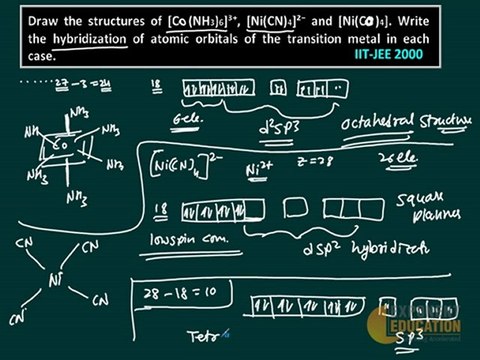 Draw the structures of [Co(NH3)6]³⁺, [Ni(CN)4]²⁻ and [Ni(CO)4]. Write
the hybridization of atomic orbitals of the transition metal in each
case.
IIT-JEE 2000
27 - 3 = 24
18
6 ele.
d²sp3
octahedral structure
26 ele.
NH3
NH3
NH3
Co
NH3
NH3
NH3
[Ni(CN)4]²⁻
Ni²⁺
Z = 28
18
square
planner
low spin com.
dsp²
CN
CN
Ni
CN
CN
28 - 18 = 10
sp3
Tetr
EDUCATION